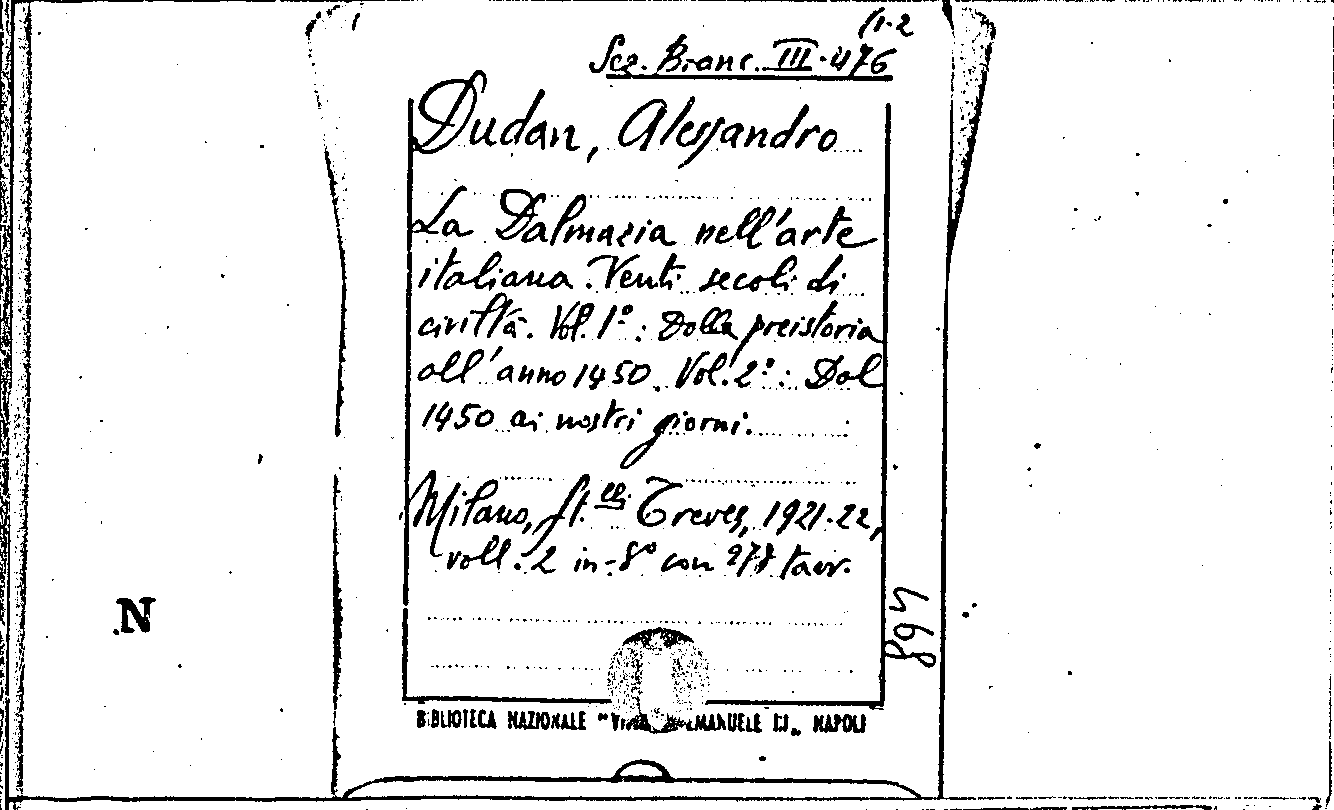 (1-2
Sez. Branc. III.476
Dudan, Alessandro
La Dalmazia nell'arte
italiana. Venti secoli di
civiltà. Vol. 1º: Dalla preistoria
all'anno 1450. Vol. 2º: Dal
1450 ai nostri giorni.
Milano, f.lli Treves, 1921-22,
voll. 2 in-8º con 278 tavv.
N
BIBLIOTECA NAZIONALE "VITT. EMANUELE III„ NAPOLI